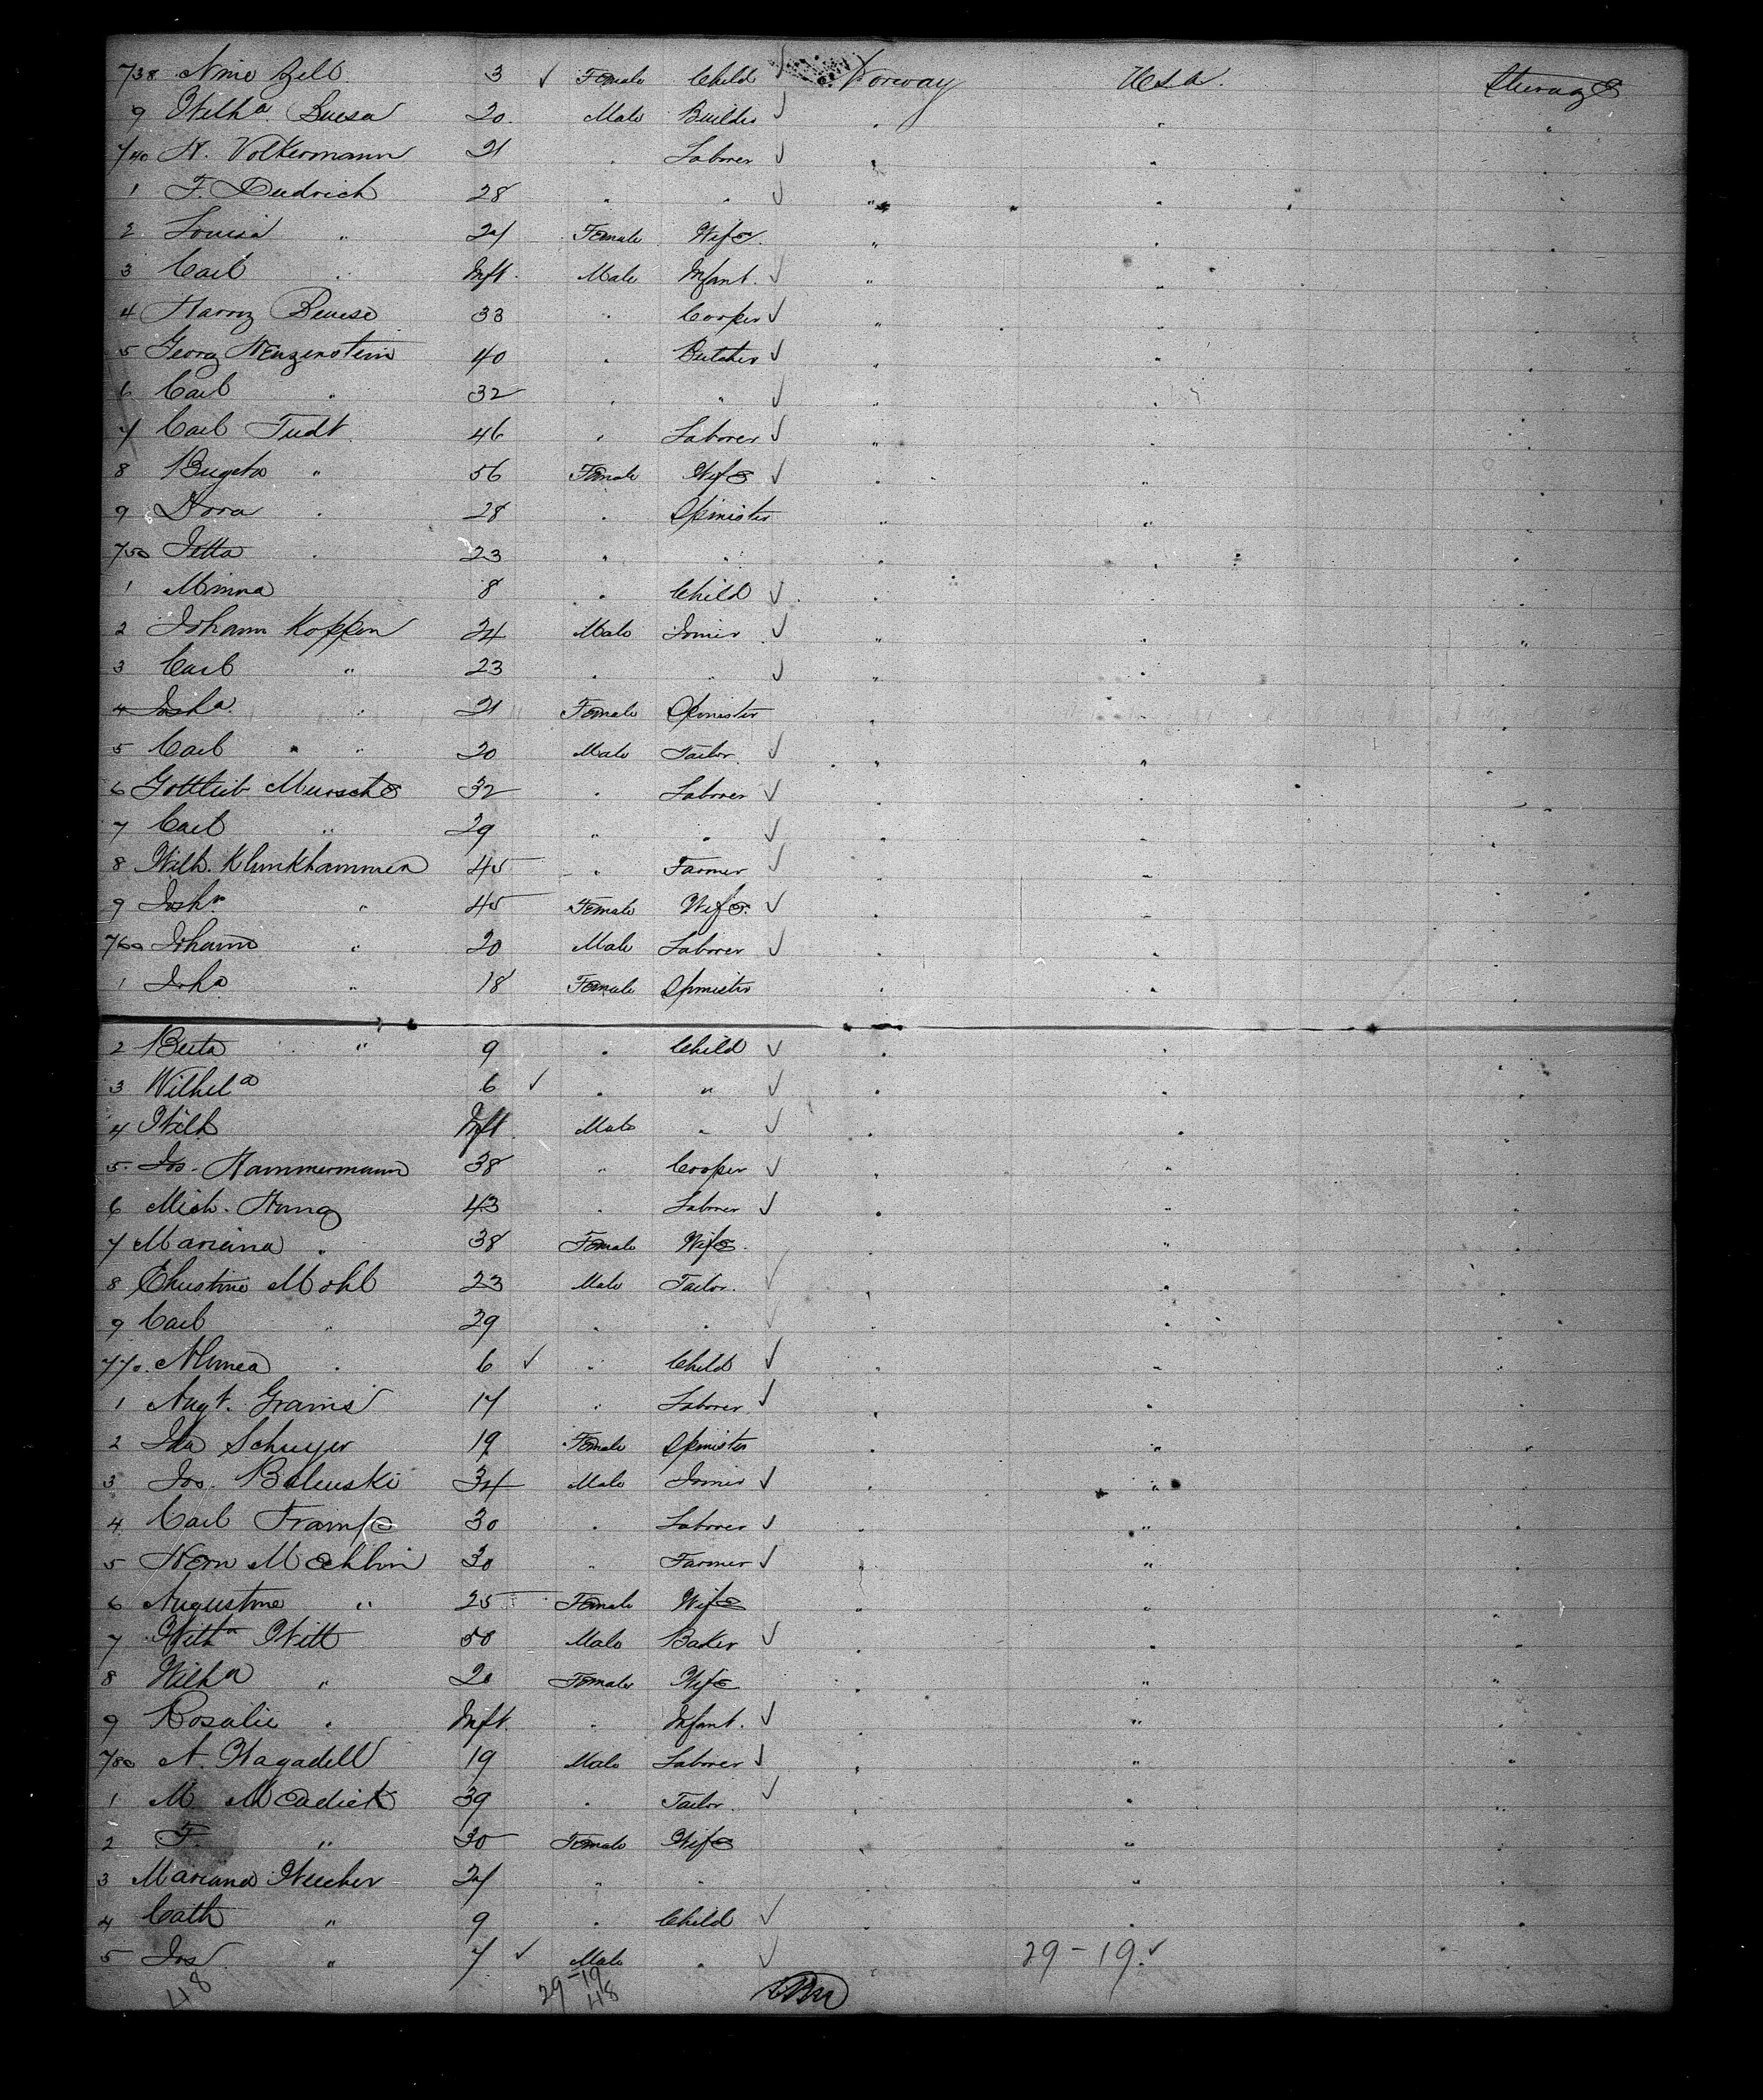 738 Nine Zell 3 ✓ Female Child ✓ Norway U.S.A. Steerage
9 Wilh a Buesa 20. Male Builder ✓ " " "
740 H. Volkermann 21 " Laborer ✓ " " "
1 F. Deidrich 28 " " ✓ " " "
2 Louisa " 24 Female Wife " " "
3 Carl " Inft. Male Infant. ✓ " " "
4 Harry Beuese 33 " Cooper ✓ " " "
5 Georg Wenzenstein 40 " Butcher ✓ " " "
6 Carl " 32 " " ✓ " " "
7 Carl Tudt 46 " Laborer ✓ " " "
8 " 56 Female Wife ✓ " " "
9 Dora " 28 " Spinister " " "
750 Jetta " 23 " " " " "
1 Minna 8 " Child ✓ " " "
2 Johann Koppen 24 Male Joiner ✓ " " "
3 Carl " 23 " " ✓ " " "
4 Joh a " 21 Female Spinister " " "
5 Carl " 20 Male Tailor ✓ " " "
6 Gottlieb Mursche 32 " Laborer ✓ " " "
7 Carl " 29 " " ✓ " " "
8 Wilh. Klunkhammer 45 " Farmer ✓ " " "
9 Joh " 45 Female Wife. ✓ " " "
760 Johann " 20 Male Laborer ✓ " " "
1 Joha " 18 Female Spinister " " "
2 Berta " 9 " Child ✓ " " "
3 Wilhel a 6 ✓ " " ✓ " " "
4 Wilh Inft. Male " ✓ " " "
5. Jos. Hammermann 38 " Cooper ✓ " " "
6 Mich. Hung 43 " Laborer ✓ " " "
7 Mariana " 38 Female Wife. " " "
8 Christine Mohl 23 Male Tailor. ✓ " " "
9 Carl " 29 " " ✓ " " "
770. " 6 ✓ " Child ✓ " " "
1 Augt. Grams 17 " Laborer ✓ " " "
2 Ida Schuyer 19 Female Spinister " " "
3 Jos. Balenski 34 Male Joiner ✓ " " "
4 Carl Tramp 30 " Laborer ✓ " " "
5 Hern Mechlin 30 " Farmer ✓ " " "
6 Augustine " 25 Female Wife " " "
7 Wilh Witt 30 Male Baker ✓ " " "
8 Wilh a " 20 Female Wife " " "
9 Rosalie " Inft. " Infant. ✓ " " "
780 A. Wagadell 19 Male Laborer ✓ " " "
1 M. Madick 39 " Tailor. ✓ " " "
2 F. " 30 Female Wife " " "
3 Mariana Wecher 24 " " " " "
4 Cath " 9 " Child ✓ " " "
5 Jos " 7 ✓ Male " ✓ " 29-19 ✓ "
48 29-19
48